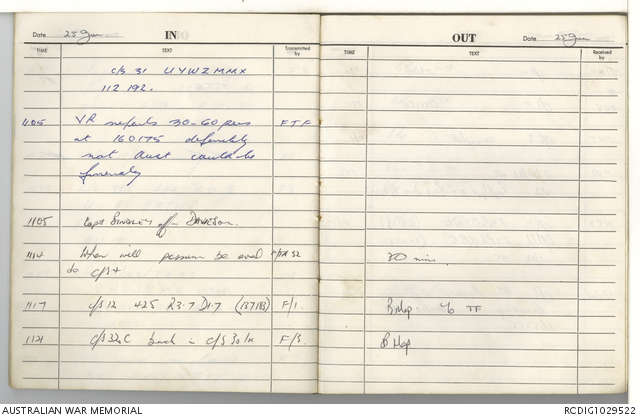 Date 25 Jun IN
TIME TEXT Transmitted by
c/s 31 UYWZMMX
112 192.
1105 VR reports 30-60 pers FTF
at 160175 definitely
not Aust could be
friendly
1105 Capt BINDLEY off - DAVIESON.
1114 When will possum be avail
to c/s 4
1117 c/s 12 425 R3.7 D1.7 (137183) F/1.
1121 c/s 32C back in c/s 30 F/3.
OUT Date 25 Jun
TIME TEXT Received by
20 mins.
B Map TF
B Map
AUSTRALIAN WAR MEMORIAL
RCDIG1029522